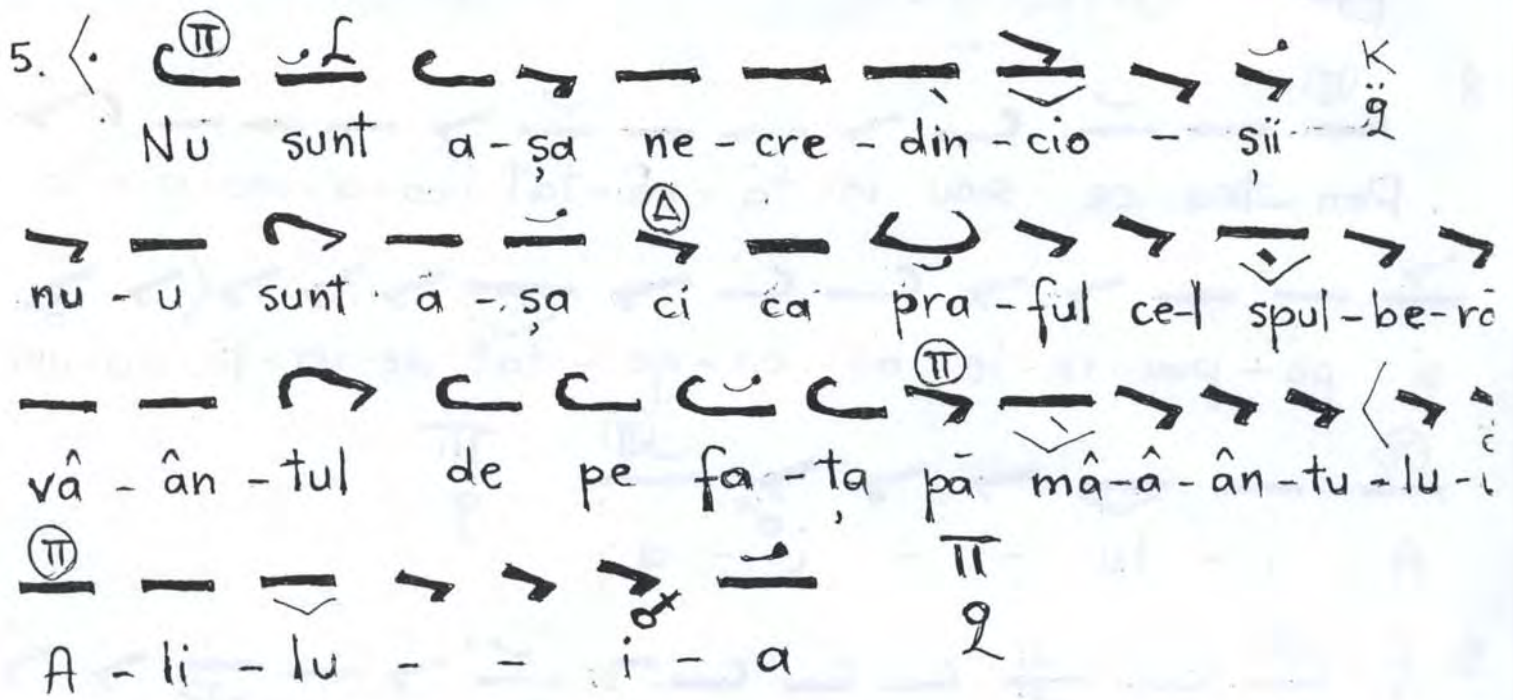 5. Nu sunt a-șa ne-cre-din-cio - șii
nu-u sunt a-șa ci ca pra-ful ce-l spul-be-ră
vâ-ân-tul de pe fa-ța pă mâ-â-ân-tu-lu-i
A-li-lu - - i-a